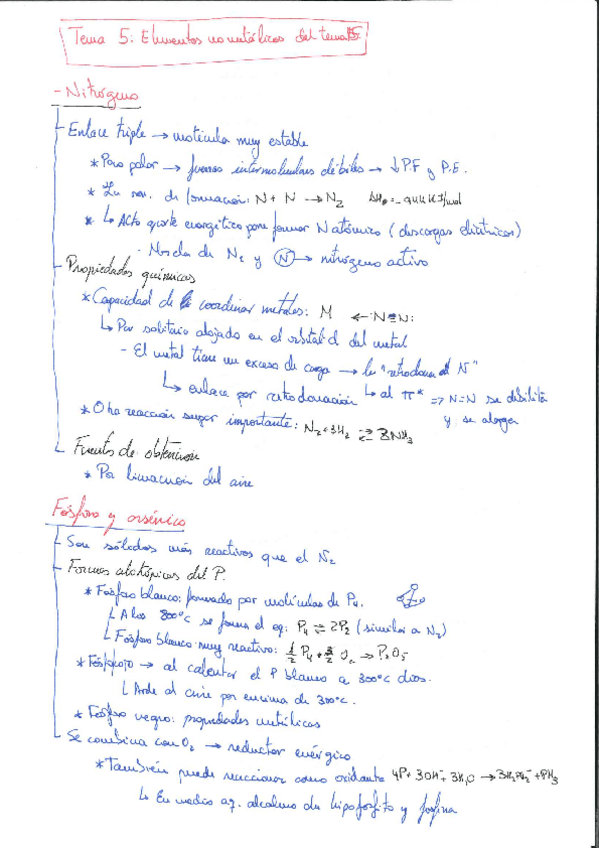 Tema 5: Elementos no metálicos del tema 15.
- Nitrógeno
- Enlace triple → molécula muy estable
* Poco polar → fuerzas intermoleculares débiles → ↓ P.F y P.E.
* de formación: N + N → N₂
* ↳ Alto aporte energético para formar N atómico (descargas eléctricas)
- Mezcla de N₂ y (N) → nitrógeno activo
- Propiedades químicas
* Capacidad de coordinar metales: M ← :N≡N:
↳ Par solitario alojado en el orbital d del metal
- El metal tiene un exceso de carga → lo "retrodona al N"
↳ enlace por retrodonación ↳ al π* => N=N se debilita
y se alarga
* Otra reacción super importante: N₂ + 3H₂ ⇌ 3NH₃
- Fuentes de obtención
* Por licuación del aire
Fósforo y arsénico
- Son sólidos más reactivos que el N₂
- Formas alotrópicas del P.
* Fósforo blanco: formado por moléculas de P₄.
↳ A los 800ºC se forma el eq: P₄ ⇌ 2P₂ (similar a N₂)
↳ Fósforo blanco muy reactivo:
* Fósf. rojo → al calentar el P blanco a 300ºC días.
↳ Arde al aire por encima de 300ºC.
* Fósforo negro: propiedades metálicas
- Se combina con O₂ → reductor enérgico
* También puede reaccionar como oxidante 4P + 3OH⁻ + 3H₂O → 3H₂PO₂⁻ + PH₃
↳ En medio aq. alcalino da hipofosfito y fosfina